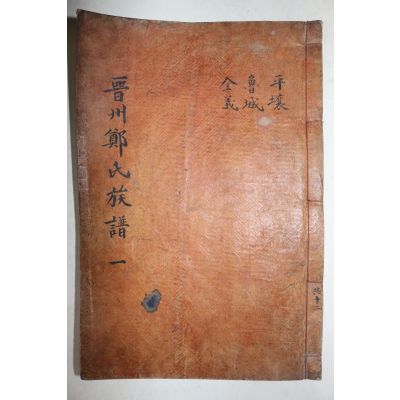 平壤
魯城
全義
晋州鄭氏族譜 一
共十二